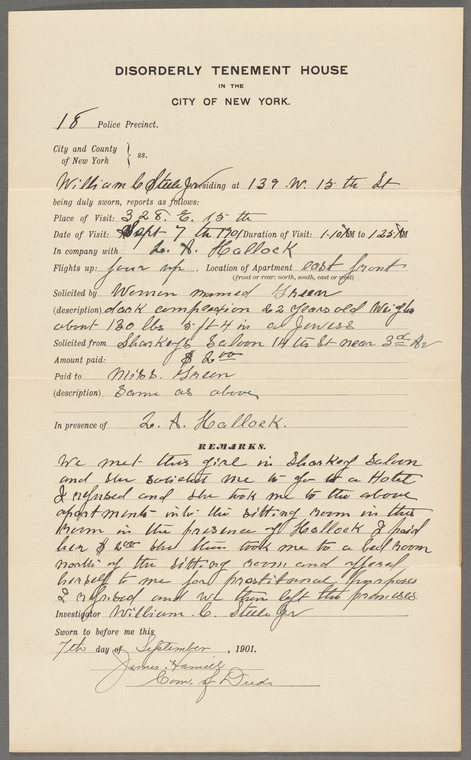 DISORDERLY TENEMENT HOUSE
IN THE
CITY OF NEW YORK.
18 Police Precinct.
City and County
of New York } ss.
William C Steele Jr residing at 139 W. 15 th St
being duly sworn, reports as follows:
Place of Visit: 328. E. 15 th
Date of Visit: Sept 7 th 1901 Duration of Visit: 1-10 AM to 1 25 AM
In company with L. A. Hallock
Flights up: four up. Location of Apartment east front
(front or rear: north, south, east or west)
Solicited by Woman named Green
(description) dark complexion 22 years old Weighs
about 130 lbs 5 ft 4 in a Jewess
Solicited from Sharkeys Saloon 14 th St near 3rd Av
Amount paid: $ 2.00
Paid to Miss. Green
(description) Same as above
In presence of L. A. Hallock.
REMARKS.
We met this girl in Sharkey Saloon
and she solicited me to go to a Hotel
I refused and she took me to the above
apartments into the sitting room in this
room in the presence of Hallock I paid
her $ 2.00 she then took me to a bed room
north of the sitting room and offered
herself to me for prostitional purposes
I refused and we then left the premises
Investigator William C. Steele Jr
Sworn to before me this
7th day of September, 1901.
James Hamill
Com. of Deeds